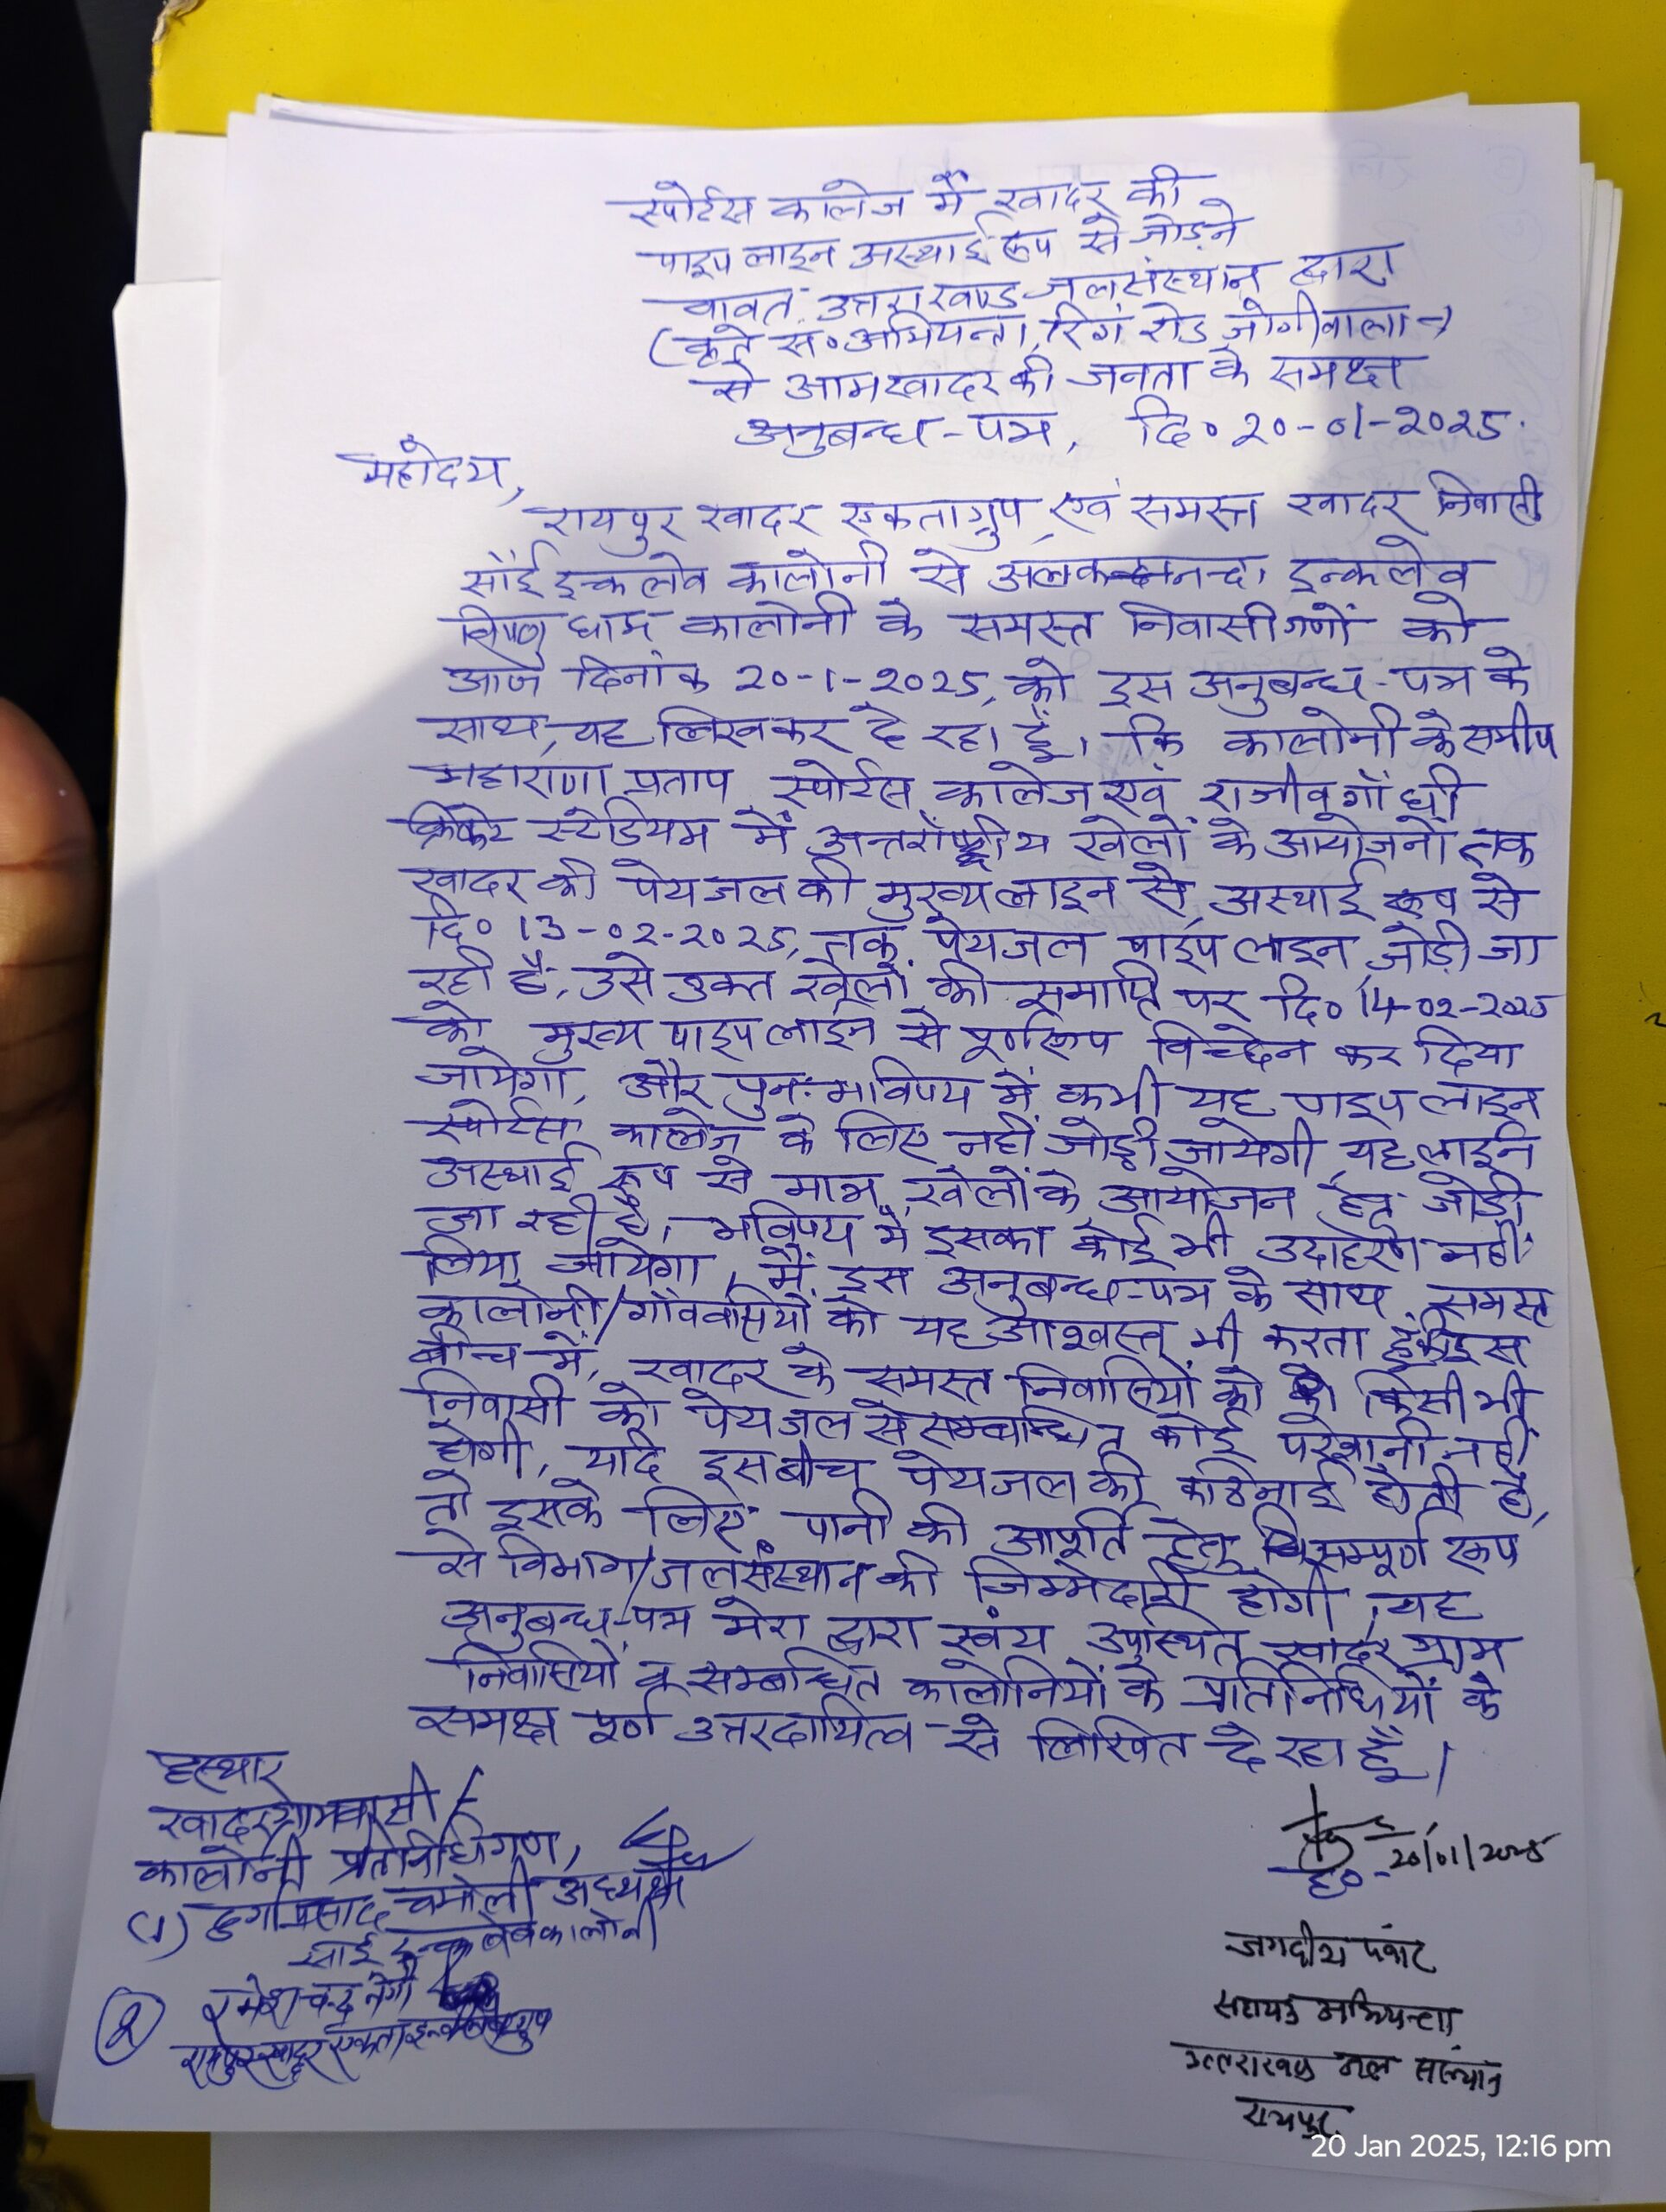 स्पोर्टस कालेज में खादर की
पाइप लाइन अस्थाई रूप से जोड़ने
वावत उत्तराखण्ड जल संस्थान द्वारा
(कृते स० अभियन्ता, रिंग रोड जोगीवाला)
से आमखादर की जनता के समक्ष
अनुबन्ध-पत्र, दि० २०-०१-२०२५.
महोदय,
रायपुर खादर एकता ग्रुप, एवं समस्त खादर निवासी
साँई इन्कलेव कालोनी से अलकनन्दा इन्कलेव
विष्णु धाम कालोनी के समस्त निवासीगणों को
आज दिनांक २०-१-२०२५, को इस अनुबन्ध-पत्र के
साथ, यह लिखकर दे रहा हूँ, कि कालोनी के समीप
महाराणा प्रताप स्पोर्टस कालेज एवं राजीव गाँधी
क्रिकेट स्टेडियम में अन्तर्राष्ट्रीय खेलों के आयोजनों तक
खादर की पेयजल की मुख्य लाइन से अस्थाई रूप से
दि० 13-०२-२०२५, तक, पेयजल पाईप लाइन जोड़ी जा
रही है, उसे उक्त खेलों की समाप्ति पर दि० 14-०२-२०२५
को मुख्य पाइप लाईन से पूर्णरूप विच्छेन कर दिया
जायेगा, और पुनः भविष्य में कभी यह पाइप लाइन
स्पोर्टस कालेज के लिए नहीं जोड़ी जायेगी, यह लाईन
अस्थाई रूप से मात्र खेलों के आयोजन हेतु जोड़ी
जा रही है, भविष्य में इसका कोई भी उदाहरण नहीं
लिया जायेगा, मैं इस अनुबन्ध-पत्र के साथ समस्त
कालोनी/गाँववासियों को यह आश्वस्त भी करता हूँ कि इस
बीच में, खादर के समस्त निवासियों को किसी भी
निवासी को पेयजल से सम्बन्धित कोई परेशानी नहीं
होगी, यदि इस बीच पेयजल की कठिनाई होती है,
तो इसके लिए पानी की आपूर्ति हेतु सम्पूर्ण रूप
से विभाग/जल संस्थान की जिम्मेदारी होगी, यह
अनुबन्ध-पत्र मेरा द्वारा स्वंय उपस्थित खादर ग्राम
निवासियों व सम्बन्धित कालोनियों के प्रतिनिधियों के
समक्ष पूर्ण उत्तरदायित्व से लिखित दे रहा हूँ।
हस्थार
खादर ग्रामवासी /
कालोनी प्रतिनिधिगण,
(1) दुर्गाप्रसाद चमोली अध्यक्ष
साई इन्कलेव कालोनी
② रमेश चन्द्र नेगी
रायपुर खादर एकता ग्रुप
ह०- 20/01/2025
जगदीश पंवार
सहायक अभियन्ता
उत्तराखण्ड जल संस्थान
रायपुर
20 Jan 2025, 12:16 pm